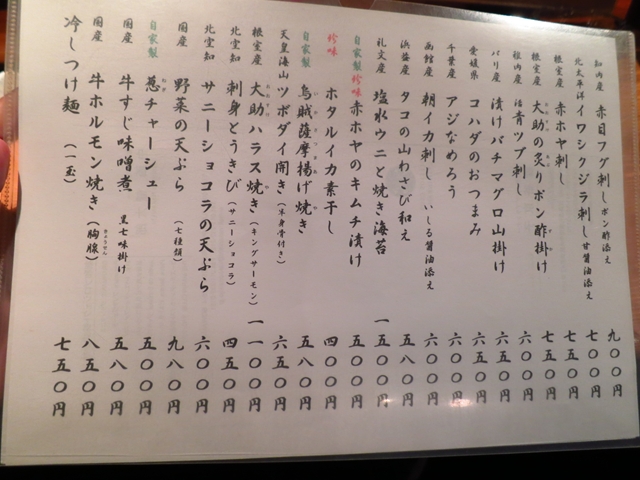 知内産 赤目フグ刺し ポン酢添え 九〇〇円
北太平洋 イワシクジラ刺し 甘醤油添え 七〇〇円
根室産 赤ホヤ刺し 五五〇円
根室産 大助の炙りポン酢掛け 七五〇円
稚内産 活青ツブ刺し 六〇〇円
バリ産 漬けバチマグロ山掛け 六五〇円
愛媛県 コハダのおつまみ 六〇〇円
千葉産 アジなめろう 六五〇円
函館産 朝イカ刺し いしる醤油添え 六〇〇円
浜益産 タコの山わさび和え 五八〇円
礼文産 塩水ウニと焼き海苔 一五〇〇円
自家製珍味 赤ホヤのキムチ漬け 五〇〇円
珍味 ホタルイカ素干し 四〇〇円
自家製 烏賊薩摩揚げ焼き 五八〇円
天皇海山 ツボダイ開き (半身骨付き) 六五〇円
根室産 大助ハラス焼き (キングサーモン) 一一〇〇円
北空知 刺身とうきび (サニーショコラ) 四五〇円
北空知 サニーショコラの天ぷら 六〇〇円
国産 野菜の天ぷら (七種類) 九八〇円
自家製 葱チャーシュー 五〇〇円
国産 牛すじ味噌煮 黒七味掛け 五八〇円
国産 牛ホルモン焼き (胸腺) 八五〇円
冷しつけ麺 (一玉) 七五〇円